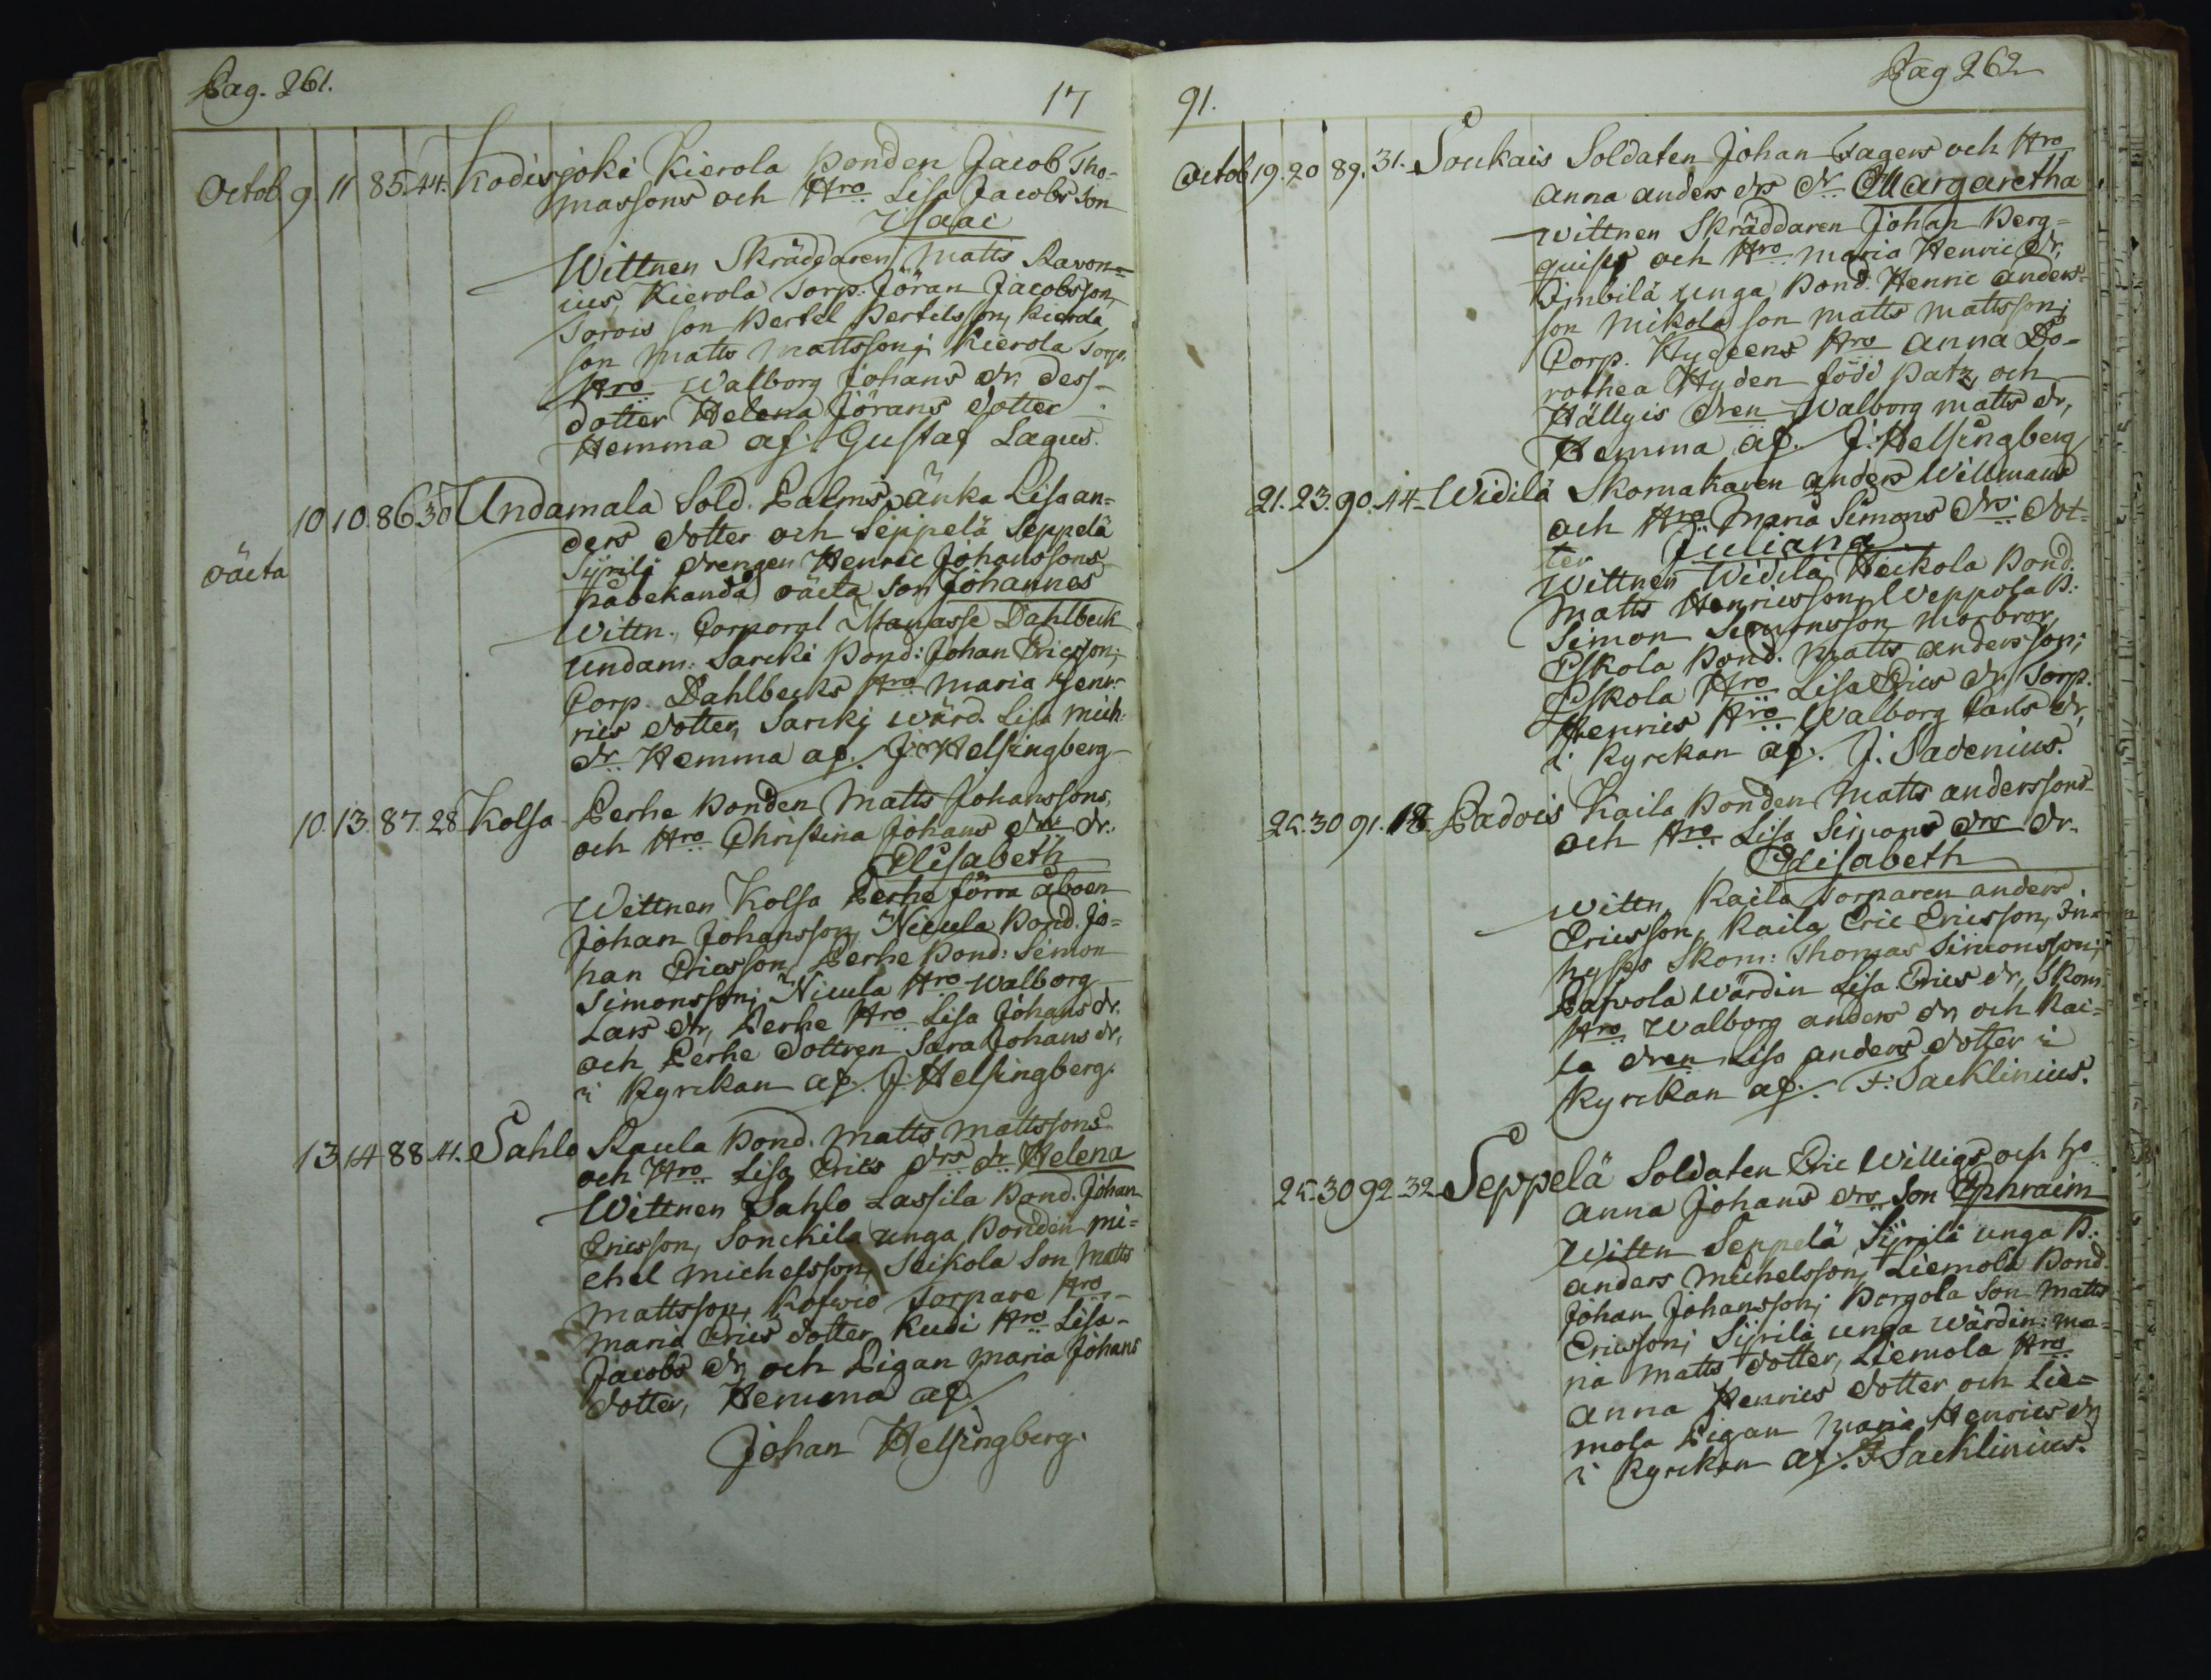 Pag. 261.
17
Octob. 9. 11 85. 44. Kodisjoki Kierola Bonden Jacob Tho-
massons och Hro Lisa Jacobs Son
Isaac
Wittnen Skräddaren Matts Ravon=
ius, Kierola Torp. Jöran Jacobsson,
Torois son Bertel Bertilsson, Kierola
son Matts Mattsson; Kierola Torp.
Hro Walborg Johans dr. dess-
dotter Helena Jörans dotter
Hemma af: Gustaf Lagus.
10 10. 86. 30 Undamala Sold. Palms änka Lisa an-
ders dotter och Seppelä Seppelä
oäcta
Sijrilä drengen Henric Johanssons
påbekanda oäcta son Johannes
Wittn. Corporal Manasse Dahlbeck
Undam. Sarcki Bond: Johan Ericsson;
Corp. Dahlbecks Hro Maria Hen-
rics dotter, Sarckj wärd. Lisa Mich.
dr. Hemma af. J. Helsingberg
10. 13. 87. 28 Kolsa Perhe Bonden Matts Johanssons,
och Hro Christina Johans drs dr.
Elisabeth
Wittnen Kolsa Perhe förra åboen
Johan Johansson, Nicula Bond. Jo=
han Ericsson, Perhe Bond: Simon
Simonsson; Nicula Hro Walborg
Lars dr, Perhe Hro Lisa Johans dr.
och Perhe dottren Sara Johans dr,
i Kyrckan af. J. Helsingberg.
13 14 88 41. Sahlo Raula Bond. Matts Mattssons
och Hro Lisa Erics drs dr Helena
Wittnen Sahlo Lassila Bond. Johan
Ericsson, Sonckila unga Bonden Mi=
chel Michelsson, Seikola Son Matts
Mattsson, Torpare Hro
Maria Erics dotter Kudi Hro Lisa
Jacobs dr, och Pigan Maria Johans
dotter, Hemma af.
Johan Helsingberg.
91.
Pag 262
Octob 19. 20 89. 31. Soukais Soldaten Johan Fagers och Hro
Anna anders drs dr. Margaretha
Wittnen Skräddaren Johan Berg=
quist och Hro Maria Henrics dr,
unga Bond. Henric Anders-
son Mikola son Matts Mattsson;
Corp. Hydeens Hro Anna Do-
rothea Hyden född Patz, och
Hällyis dren Walborg Matts dr,
Hemma af. J. Helsingberg
21. 23. 90. 44 Widilä Skomakaren Anders Willmans
och Hro Maria Simons drs dot-
ter Juliana
Wittnen Widilä Heikola Bond.
Matts Henricsson, Weppola B:
Simon Simonsson Morbror,
Eskola Bond. Matts Andersson;
Eskola Hro Lisa Erics dr, Torp.
Henrics Hro Walborg Lars dr,
i Kyrckan af. J. Sadenius.
25. 30 91. 18 Padois Kaila Bonden Matts Anderssons
och Hro Lisa Simons drs dr.
Elisabeth
Wittn. Kaila Torparen Anders
Ericsson, Kaila Eric Ericsson, In-
hyses Skom: Thomas Simonsson;
Pafvola Wärdin Lisa Erics dr, Skom.
Hro Walborg anders dr, och Kai=
la dren Lisa anders dotter i
Kyrckan af. F. Sacklinius.
25. 30 92. 32. Seppelä Soldaten Eric Willigs och Ho
Anna Johans drs son Ephraim
Wittn Seppelä Sijrilä unga B.
Anders Michelsson, Liemola Bond.
Johan Johansson; Borgola Son Matts
Ericsson; Sijrilä unga Wärdin: Ma-
ria Matts dotter, Liemola Hro
Anna Henrics dotter och Lie=
mola Pigan Maria Henrics dr,
i Kyrckan af. F Sacklinius.